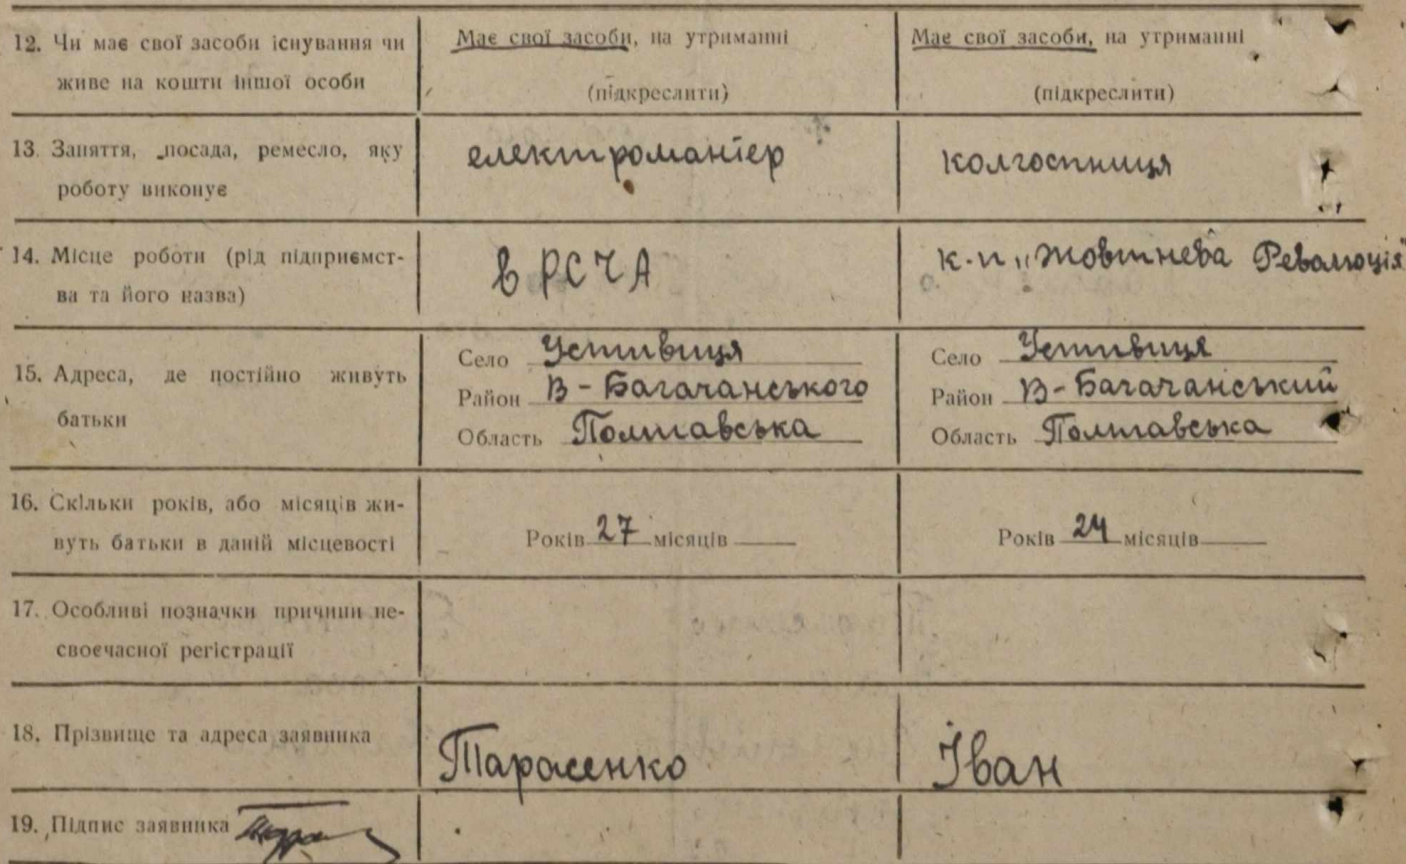 12. Чи має свої засоби існування чи
живе на кошти іншої особи
Має свої засоби, на утриманні
(підкреслити)
Має свої засоби, на утриманні
(підкреслити)
13. Заняття, посада, ремесло, яку
роботу виконує
електромантер
колгоспниця
14. Місце роботи (рід підприємст-
ва та його назва)
в РСЧА
к-п „Жовтнева Революція"
15. Адреса, де постійно живуть
батьки
Село Устивиця
Район В-Багачанського
Область Полтавська
Село Устивиця
Район В-Багачанський
Область Полтавська
16. Скільки років, або місяців жи-
вуть батьки в даній місцевості
Років 27 місяців
Років 24 місяців
17. Особливі позначки причини не-
своєчасної регістрації
18. Прізвище та адреса заявника
Тарасенко
Іван
19. Підпис заявника